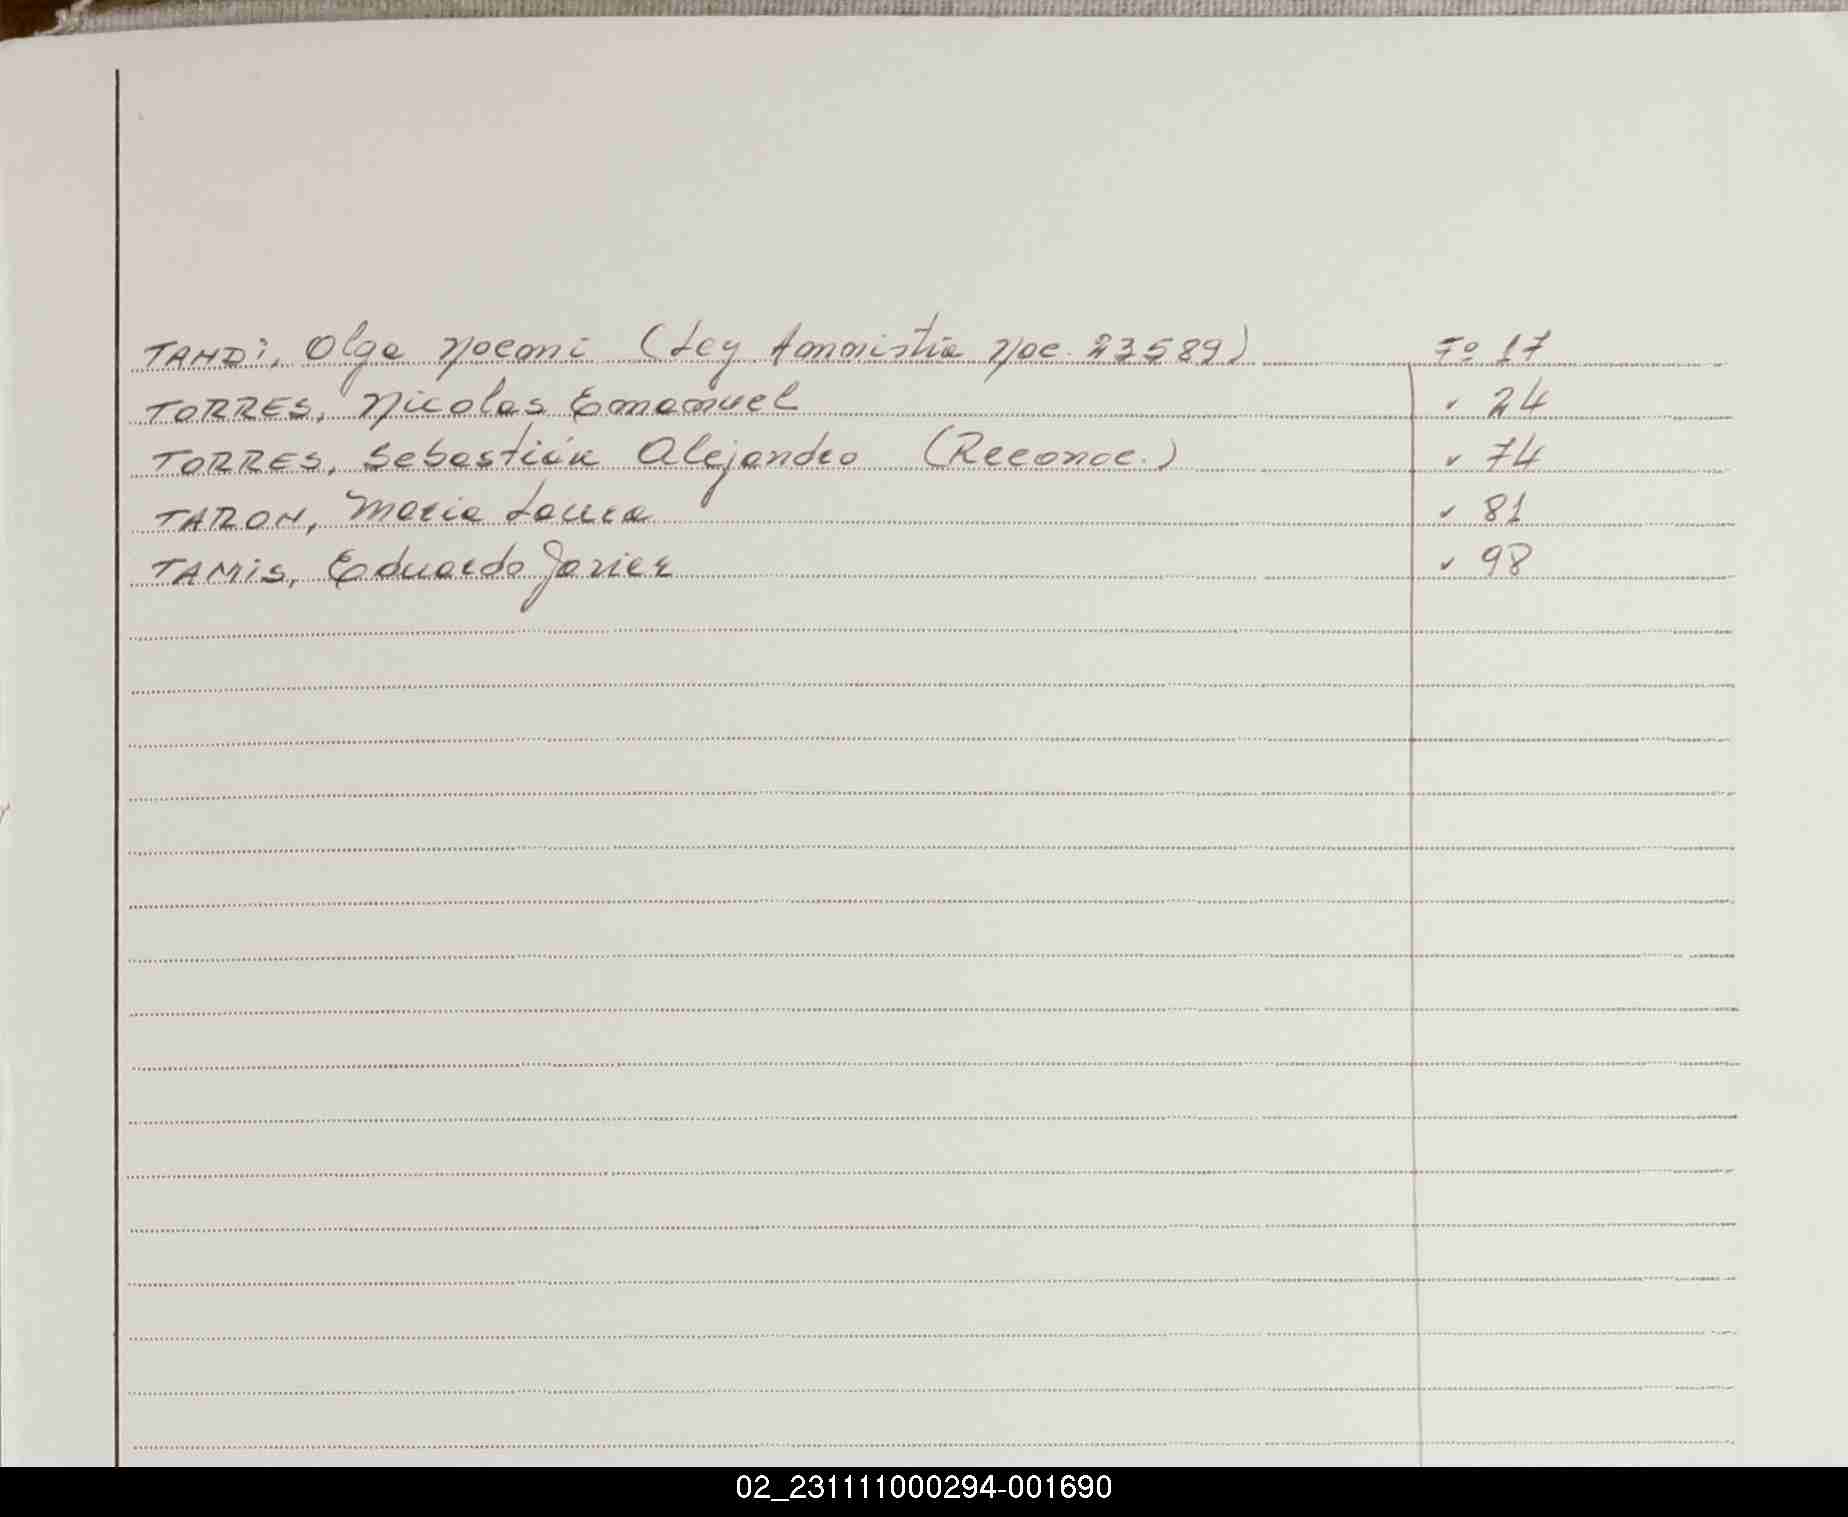 TANDi, Olga Noemi (Ley Amnistía Nac. 23589) Fº 17
TORRES, Nicolas Emanuel " 24
TORRES, Sebastián Alejandro (Reconoc.) " 74
TARON, Maria Laura " 81
TAMiS, Eduardo Javier " 98
02_231111000294-001690